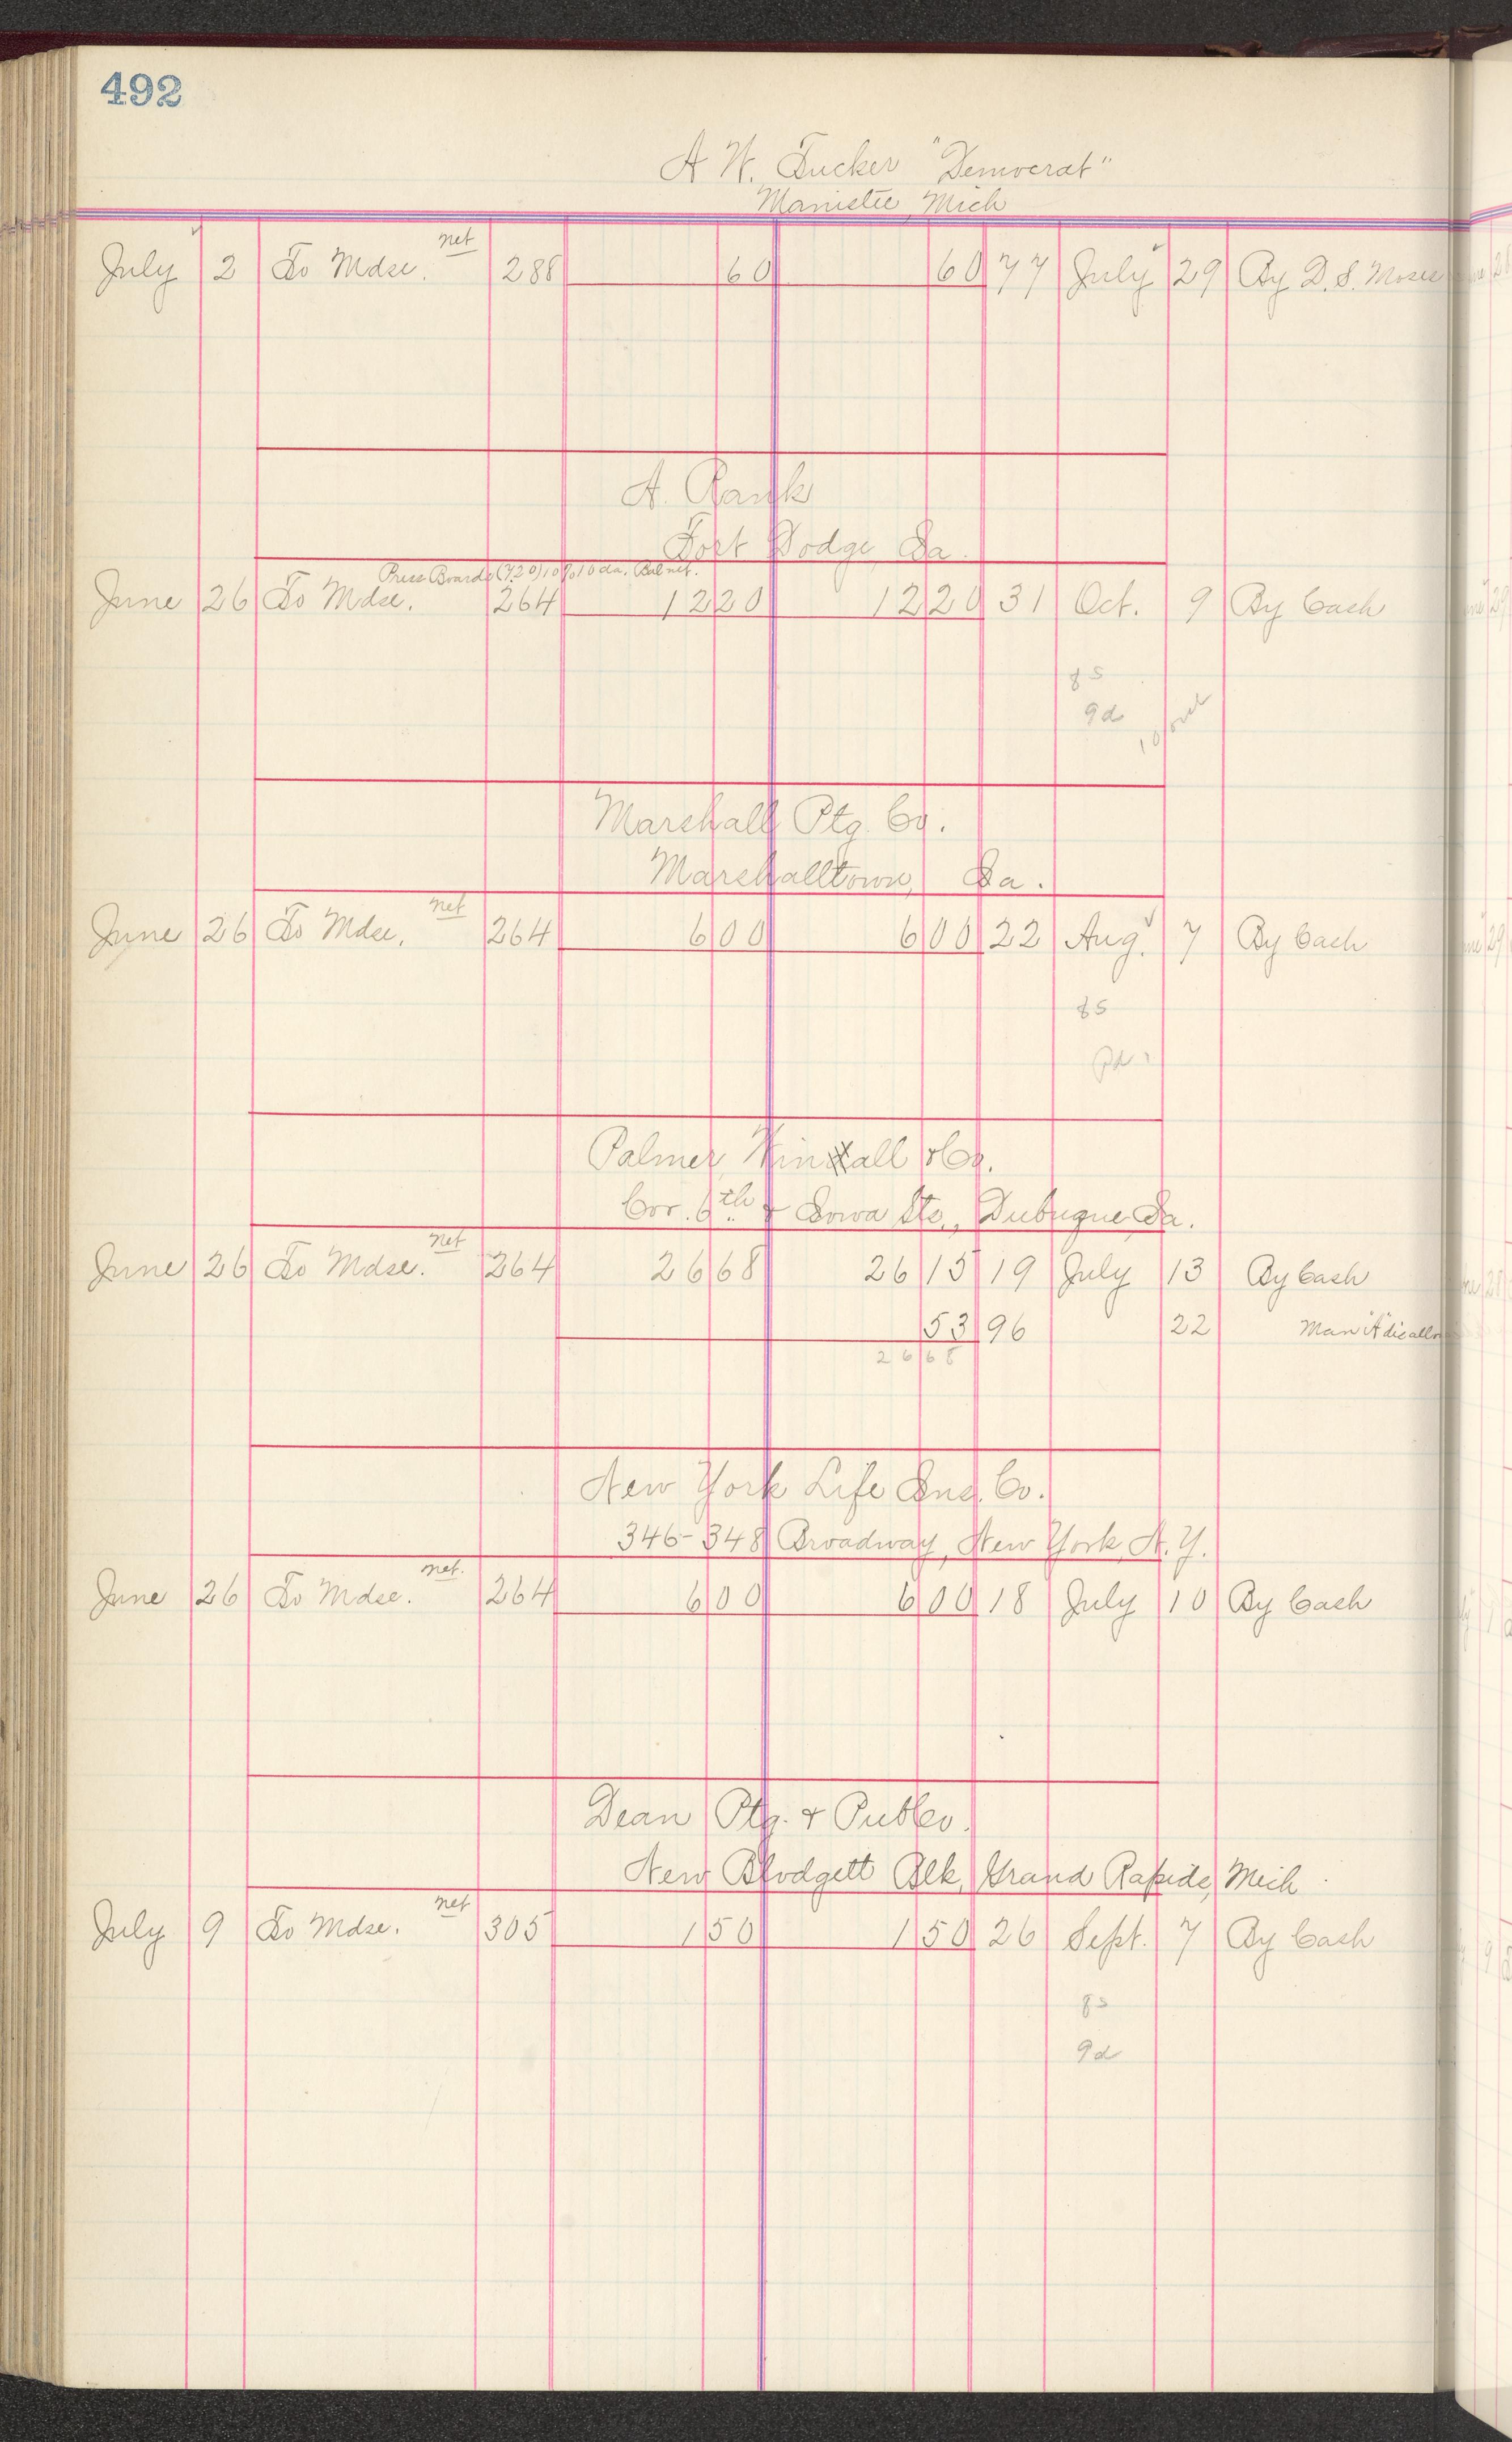 492
A W. Tucker "Democrat"
Manistee, Mich
July 2 To Mdse. net 288 60 60 77 July 29 By D. S. Moses
A. Rank
Fort Dodge, Ia.
Press Boards (7.20) 10% 10 da. Bal net.
June 26 To Mdse. 264 12 20 12 20 31 Oct. 9 By Cash
Marshall Ptg. Co.
Marshalltown, Ia.
June 26 To Mdse. net 264 6 00 6 00 22 Aug. 7 By Cash
Palmer, Winall & Co.
Cor. 6th & Iowa Sts., Dubuque, Ia.
June 26 To Mdse. net 264 26 68 26 15 19 July 13 By Cash
53 96 22 Man "A"
26 68
New York Life Ins. Co.
346-348 Broadway, New York, N.Y.
June 26 To Mdse. net. 264 6 00 6 00 18 July 10 By Cash
Dean Ptg. & Pub Co.
New Blodgett Blk, Grand Rapids, Mich
July 9 To Mdse. net 305 1 50 1 50 26 Sept. 7 By Cash